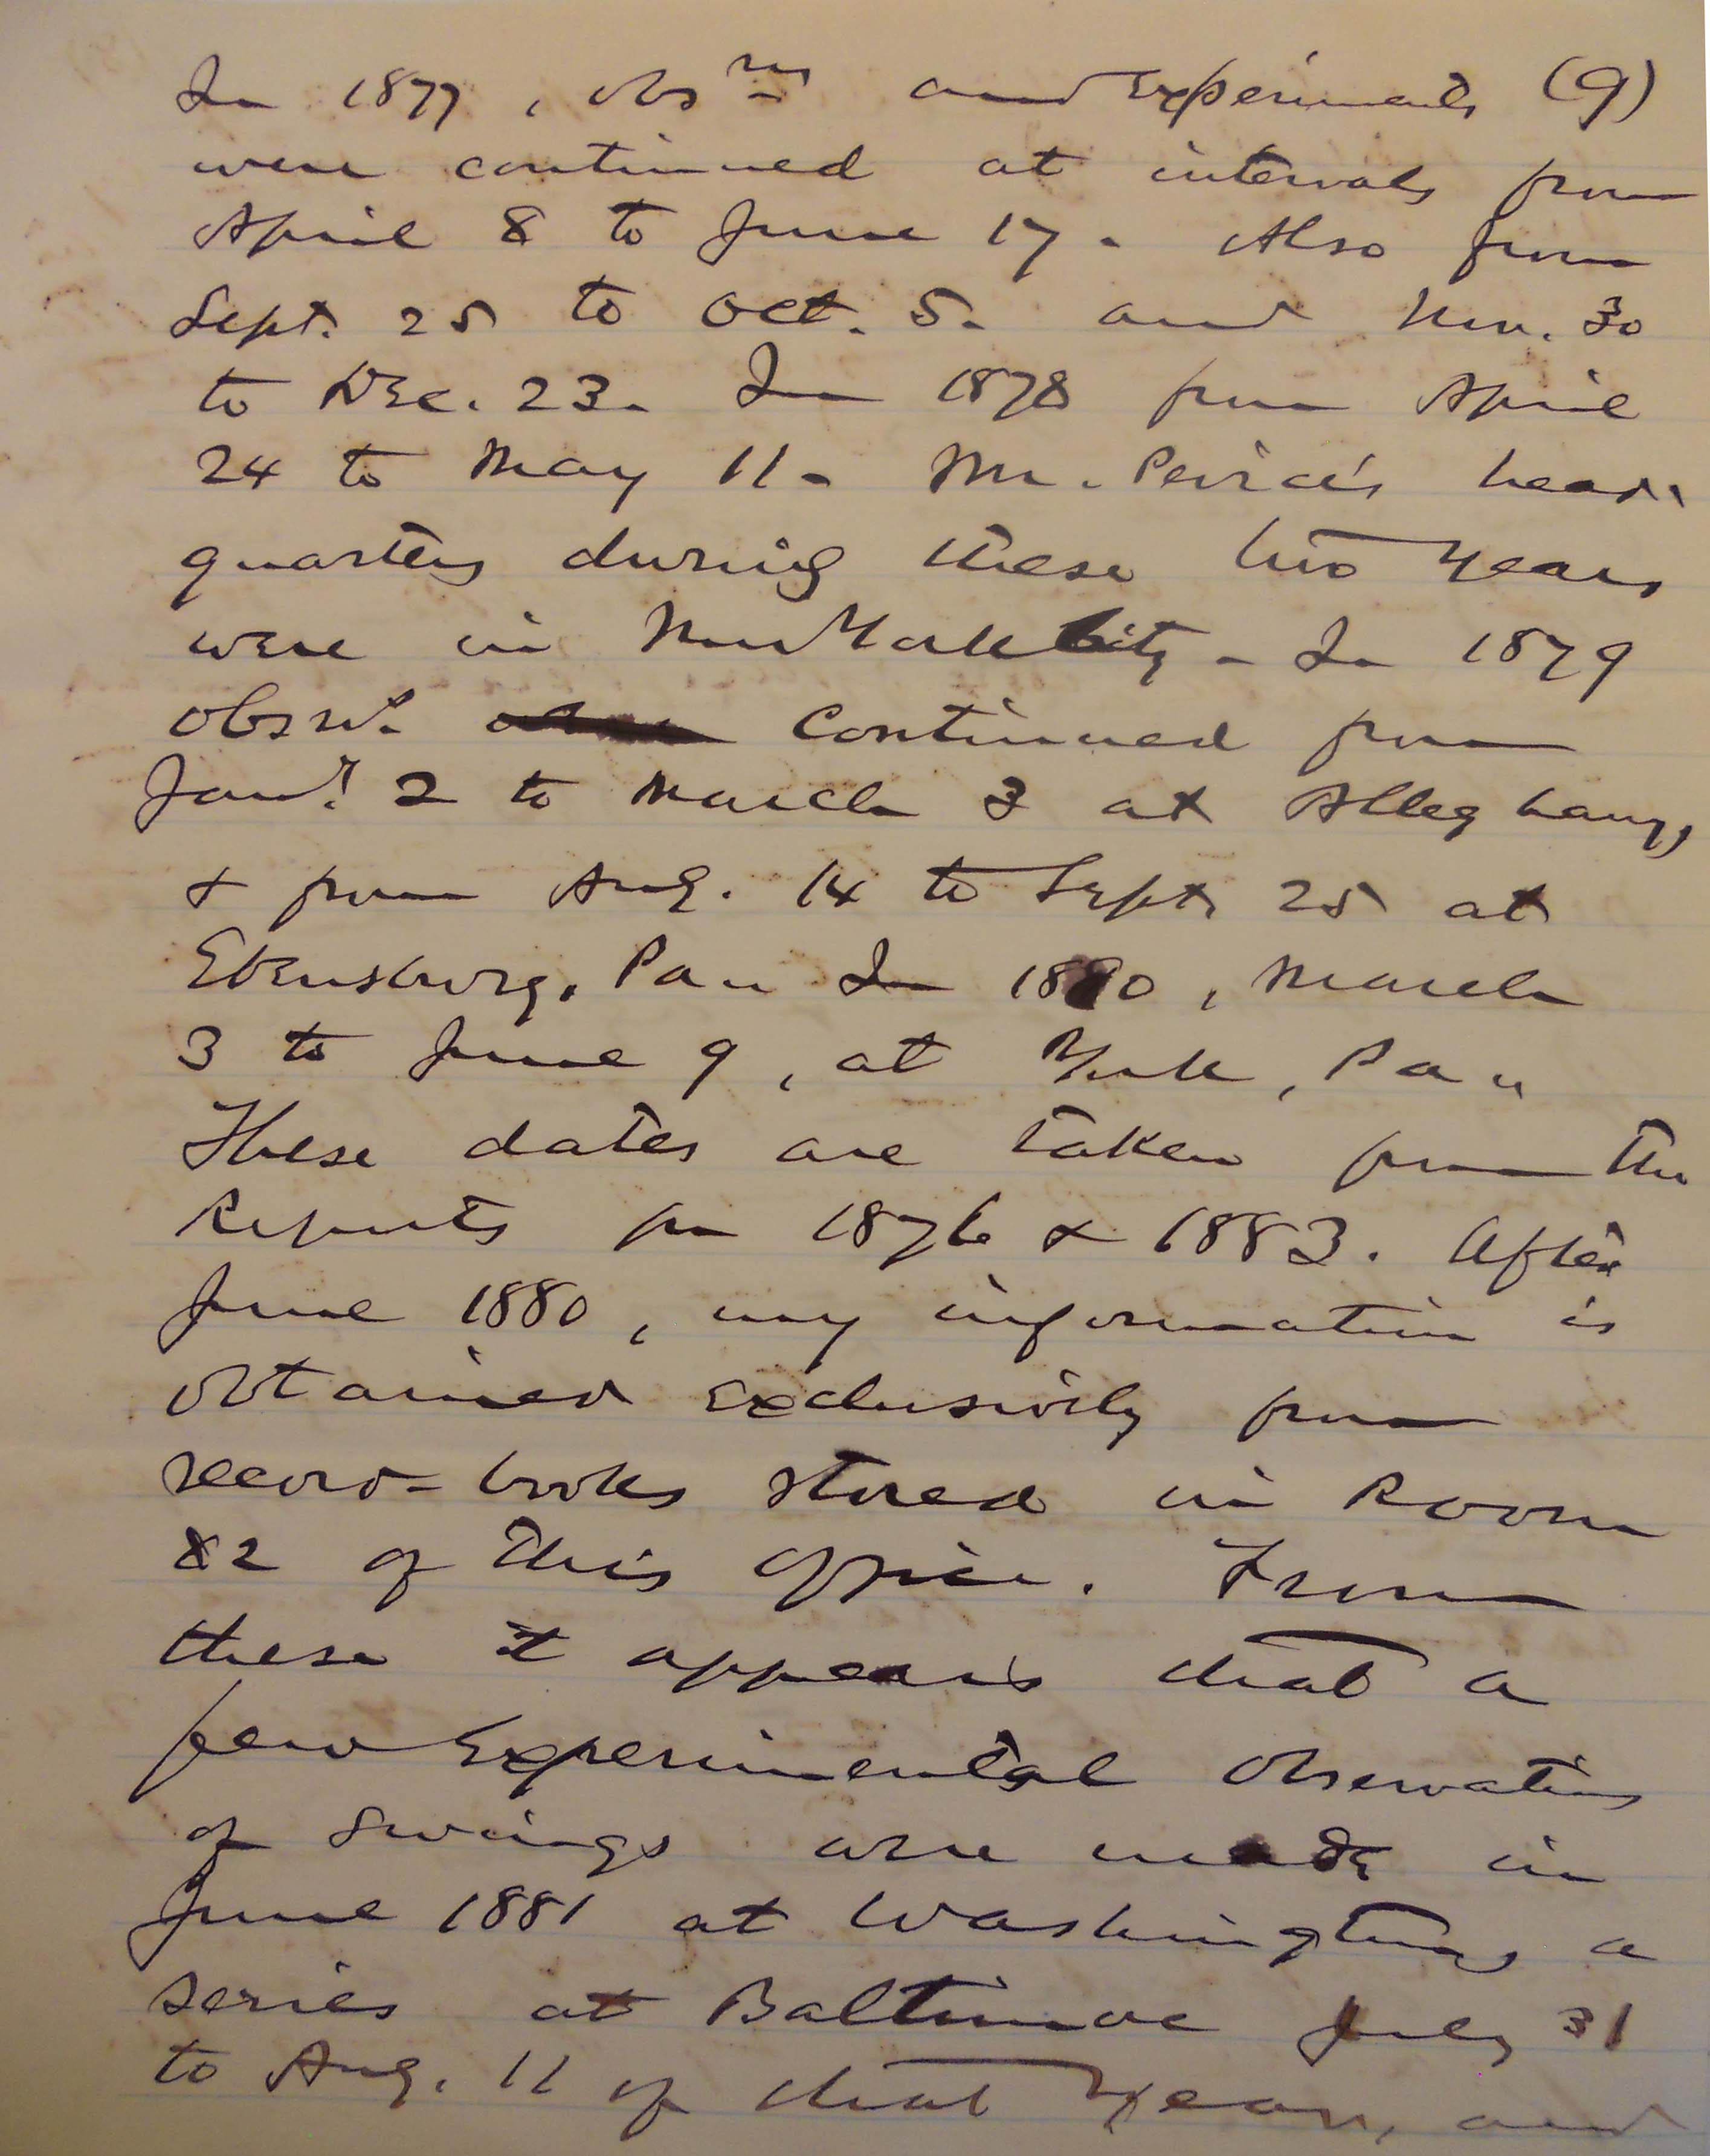 In 1877, obsns and experiments (9)
were continued at intervals from
April 8 to June 17. Also from
Sept. 25 to Oct. 5. and Nov. 30
to Dec. 23. In 1878 from April
24 to May 11. Mr. Peirce's head-
quarters during these two years
were in New York City. In 1879
continued from
Jany 2 to March 3 at Allegheny,
+ from Aug. 14 to Sept. 25 at
Ebensburg, Pa. In 1880, March
3 to June 9, at York, Pa.
These dates are taken from the
Reports for 1876 & 1883. After
June 1880, my information is
obtained exclusively from
record-books stored in Room
82 of this office. From
these it appears that a
few experimental observations
of swings were made in
June 1881 at Washington, a
series at Baltimore July 31
to Aug. 11 of that year, and